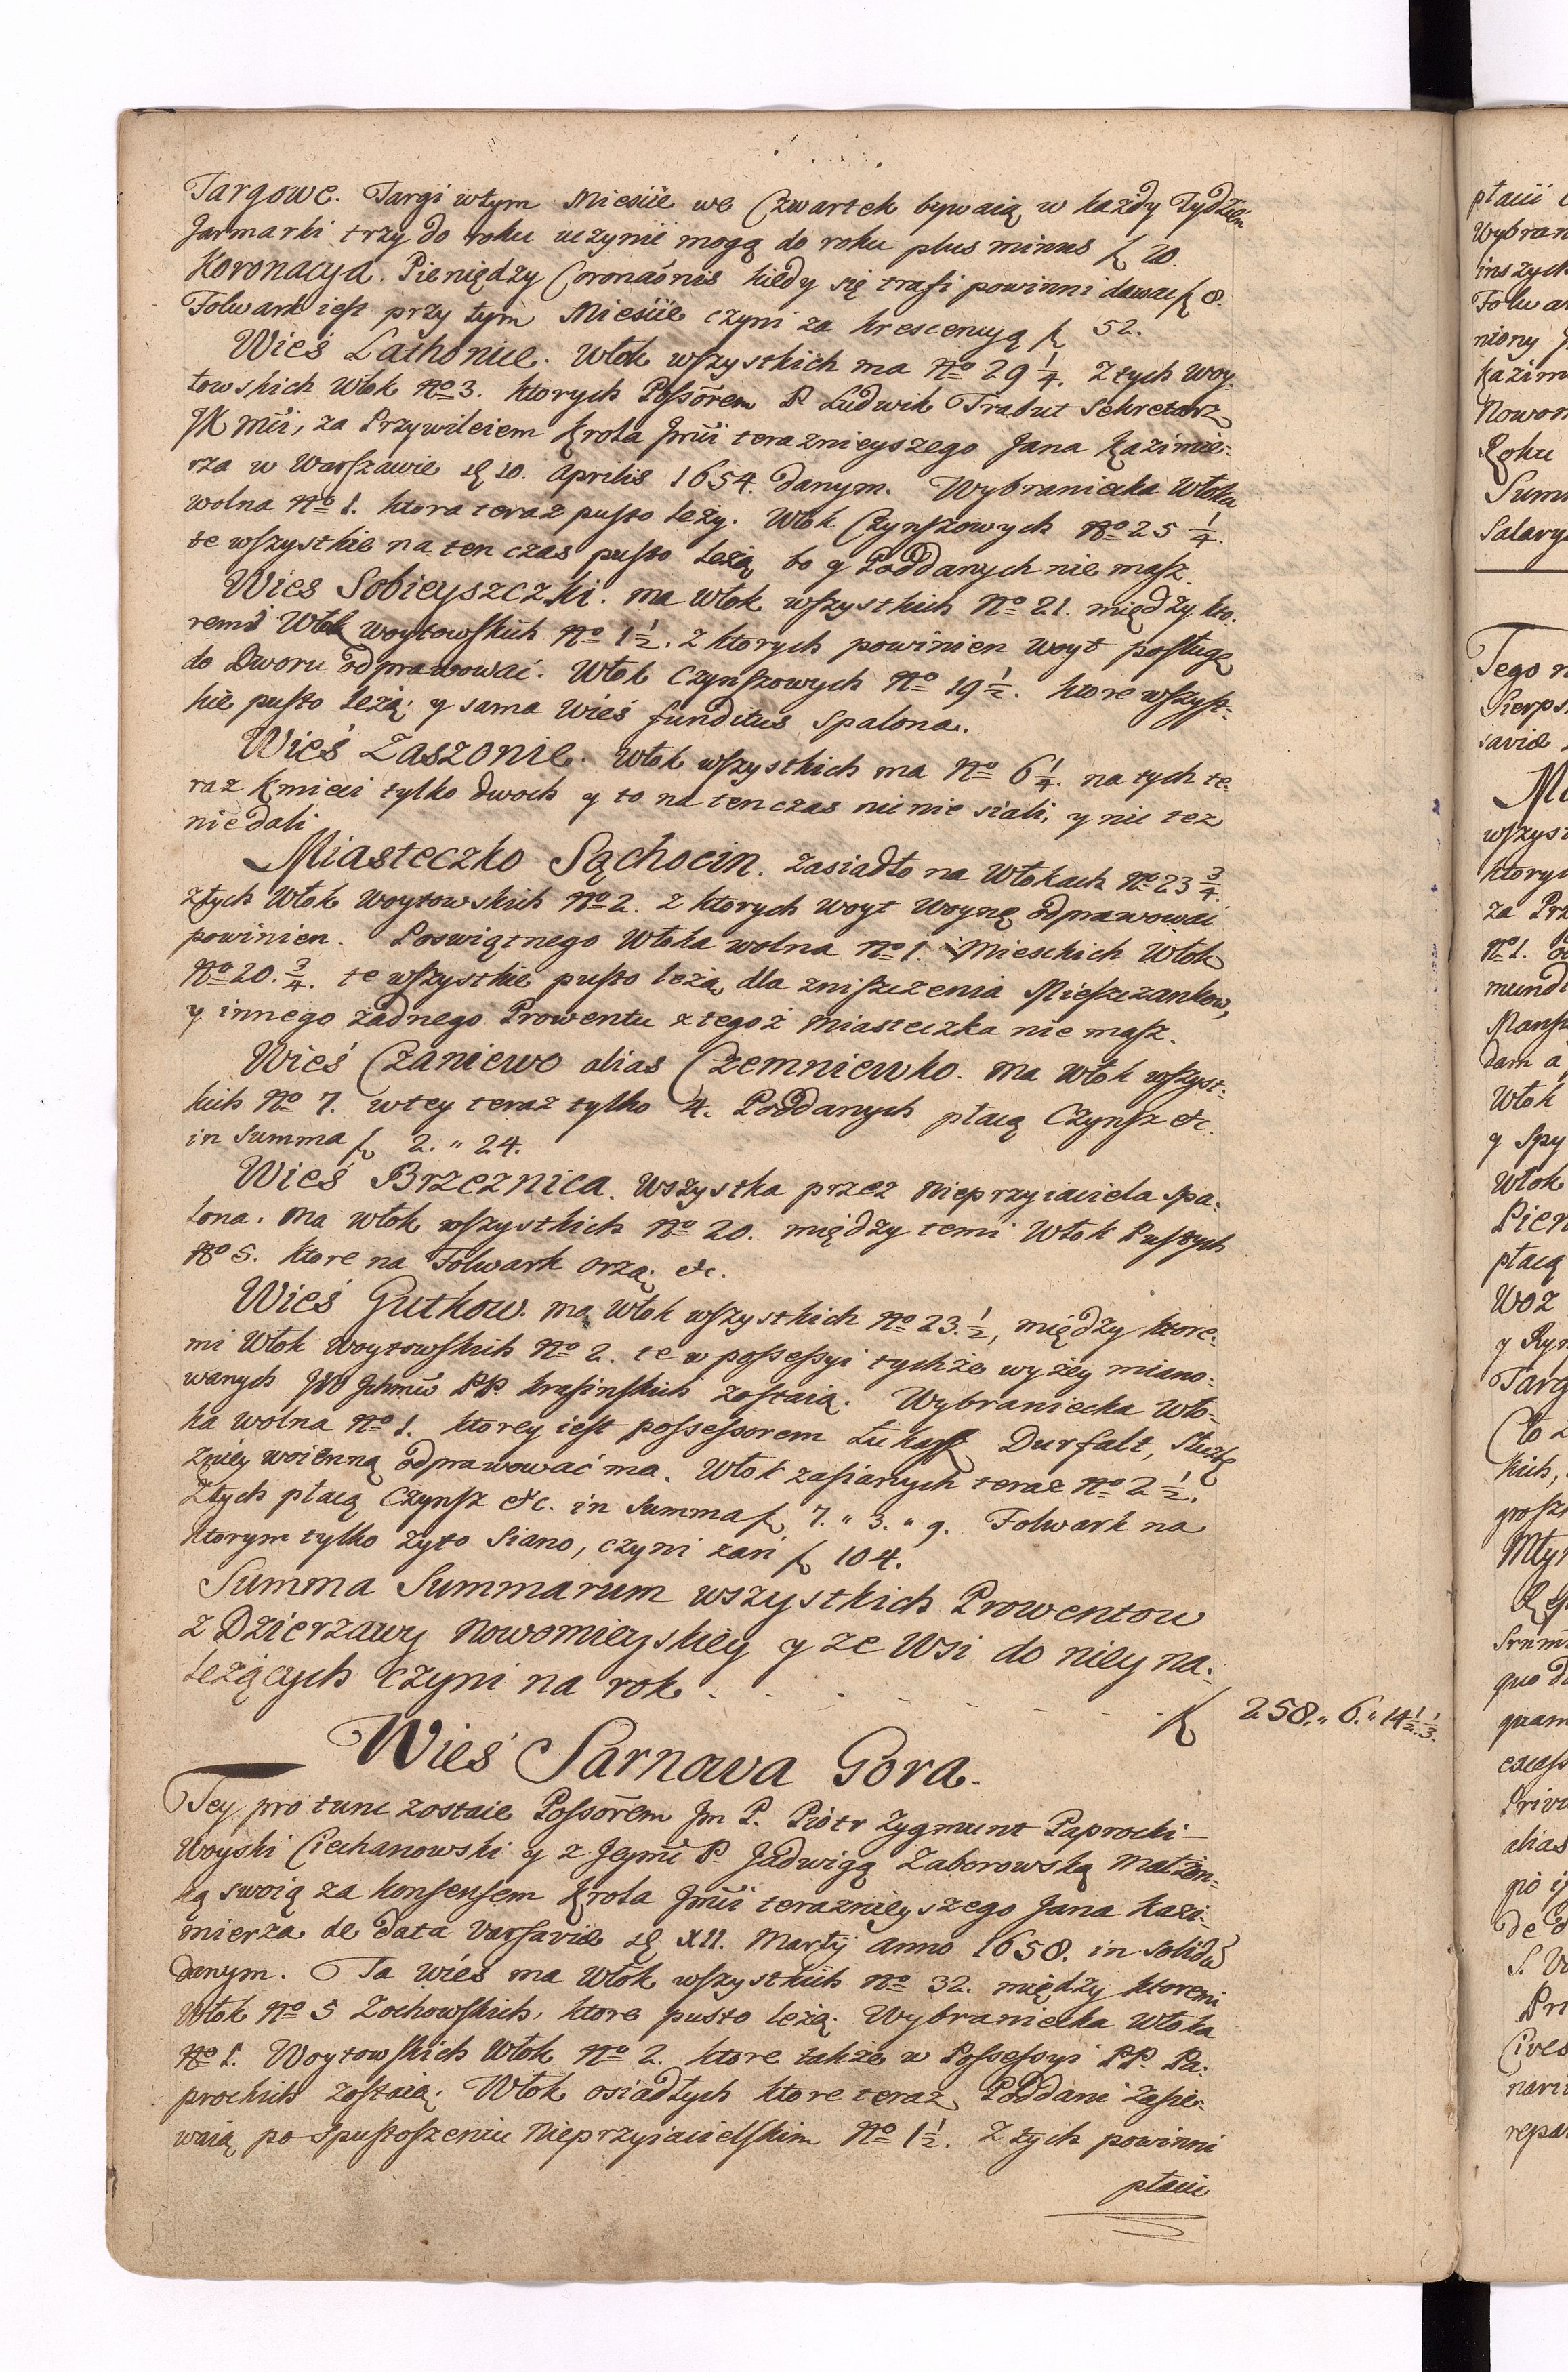 Targowe. Targi wtym Mieście we Czwartek bywaią w każdy Tydzień
Jarmarki trzy do roku uczynić mogą do roku plus minus f 20.
Koronacya. Pieniędzy Coronaonis kiedy się trafi powinni dawać f 8.
Folwark iest przy tym Mieście czyni za krescencyą f 52.
Wieś Lathonice. Włok wszystkich ma No 29 1/4. Ztych Woy-
towskich Włok No 3. ktorych Possorem P. Ludwik Trabut Sekretarz
JK mći, za Przywileiem Krola Jmći teraznieyszego Jana Kazimie-
rza w Warszawie d 10. Aprilis 1654. danym. Wybraniecka Włoka
wolna No 1. ktora teraz pusto leży. Włok Czynszowych No 25 1/4.
te wszystkie na ten czas pusto leżą bo y Poddanych nie masz.
Wieś Sobieyszczki. ma Włok wszystkich No 21. między kto-
remi Włok woytowskich No 1 1/2. z ktorych powinien woyt posługę
do Dworu odprawować. Włok Czynszowych No 19 1/2. ktore wszyst-
kie pusto leżą; y sama Wieś funditus spalona.
Wieś Zaszonie. Włok wszystkich ma No 6 1/4. na tych te-
raz Kmieci tylko dwoch y to na ten czas nic nie siali, y nic też
nie dali
Miasteczko Sąchocin. zasiadło na Włokach No 23 3/4.
ztych Włok Woytowskich No 2. z ktorych woyt Woynę odprawować
powinien. Poswiątnego Włoka wolna No 1. Mieyskich Włok
No 20. 3/4. te wszystkie pusto leżą, dla zniszczenia Mieszczankow,
y innego żadnego Prowentu z tegoż Miasteczka nie masz.
Wieś Czaniewo alias Czemniewko. ma Włok wszyst-
kich No 7. wtey teraz tylko 4. Poddanych płacą Czynsz etc.
in summa f 2. " 24.
Wieś Brzeznica. Wszystka przez Nieprzyiaciela spa-
lona. ma włok wszystkich No 20. między temi Włok Pustych
No 5. ktore na Folwark orzą; etc.
Wieś Gutkow. ma Włok wszystkich No 23. 1/2, między ktore-
mi Włok Woytowskich No 2. te w possessyi tychże wyżey miano-
wanych JW Ichmćw PP. Krasinskich zostaią. Wybraniecka Wło-
ka wolna No 1. ktorey iest possessorem Łukasz Durfalt, służbę
zniey woienną odprawować ma. Włok zasianych teraz No 2 1/2.
Ztych płacą Czynsz etc. in Summa f 7. " 3. " 9. Folwark na
ktorym tylko żyto siano, czyni zań f 104.
Summa Summarum wszystkich Prowentow
z Dzierzawy Nowomieyskiey y ze Wsi do niey na-
leżących czyni na rok - - - - - f 258. " 6. " 14 1/2. 1/3.
Wieś Sarnowa Gora.
Tey pro tunc zostaie Possorem Jm P. Piotr Zygmunt Paprocki
Woyski Ciechanowski y z Jeymć P. Jadwigą Zaborowską Małżon-
ką swoią za konsensem Krola Jmći teraznieyszego Jana Kazi-
mierza de data Varsaviæ d XII. Martij Anno 1658. in solidũ
danym. Ta wieś ma Włok wszystkich No 32. między ktoremi
Włok No 5 Zochowskich, ktore pusto leżą. Wybraniecka Włoka
No 1. Woytowskich Włok No 2. ktore także w Possessyi PP. Pa-
prockich zostaią; Włok osiadłych ktore teraz Poddani zasie-
waią po spustoszeniu Nieprzyiacielskim No 1 1/2. Z tych powinni
płacić